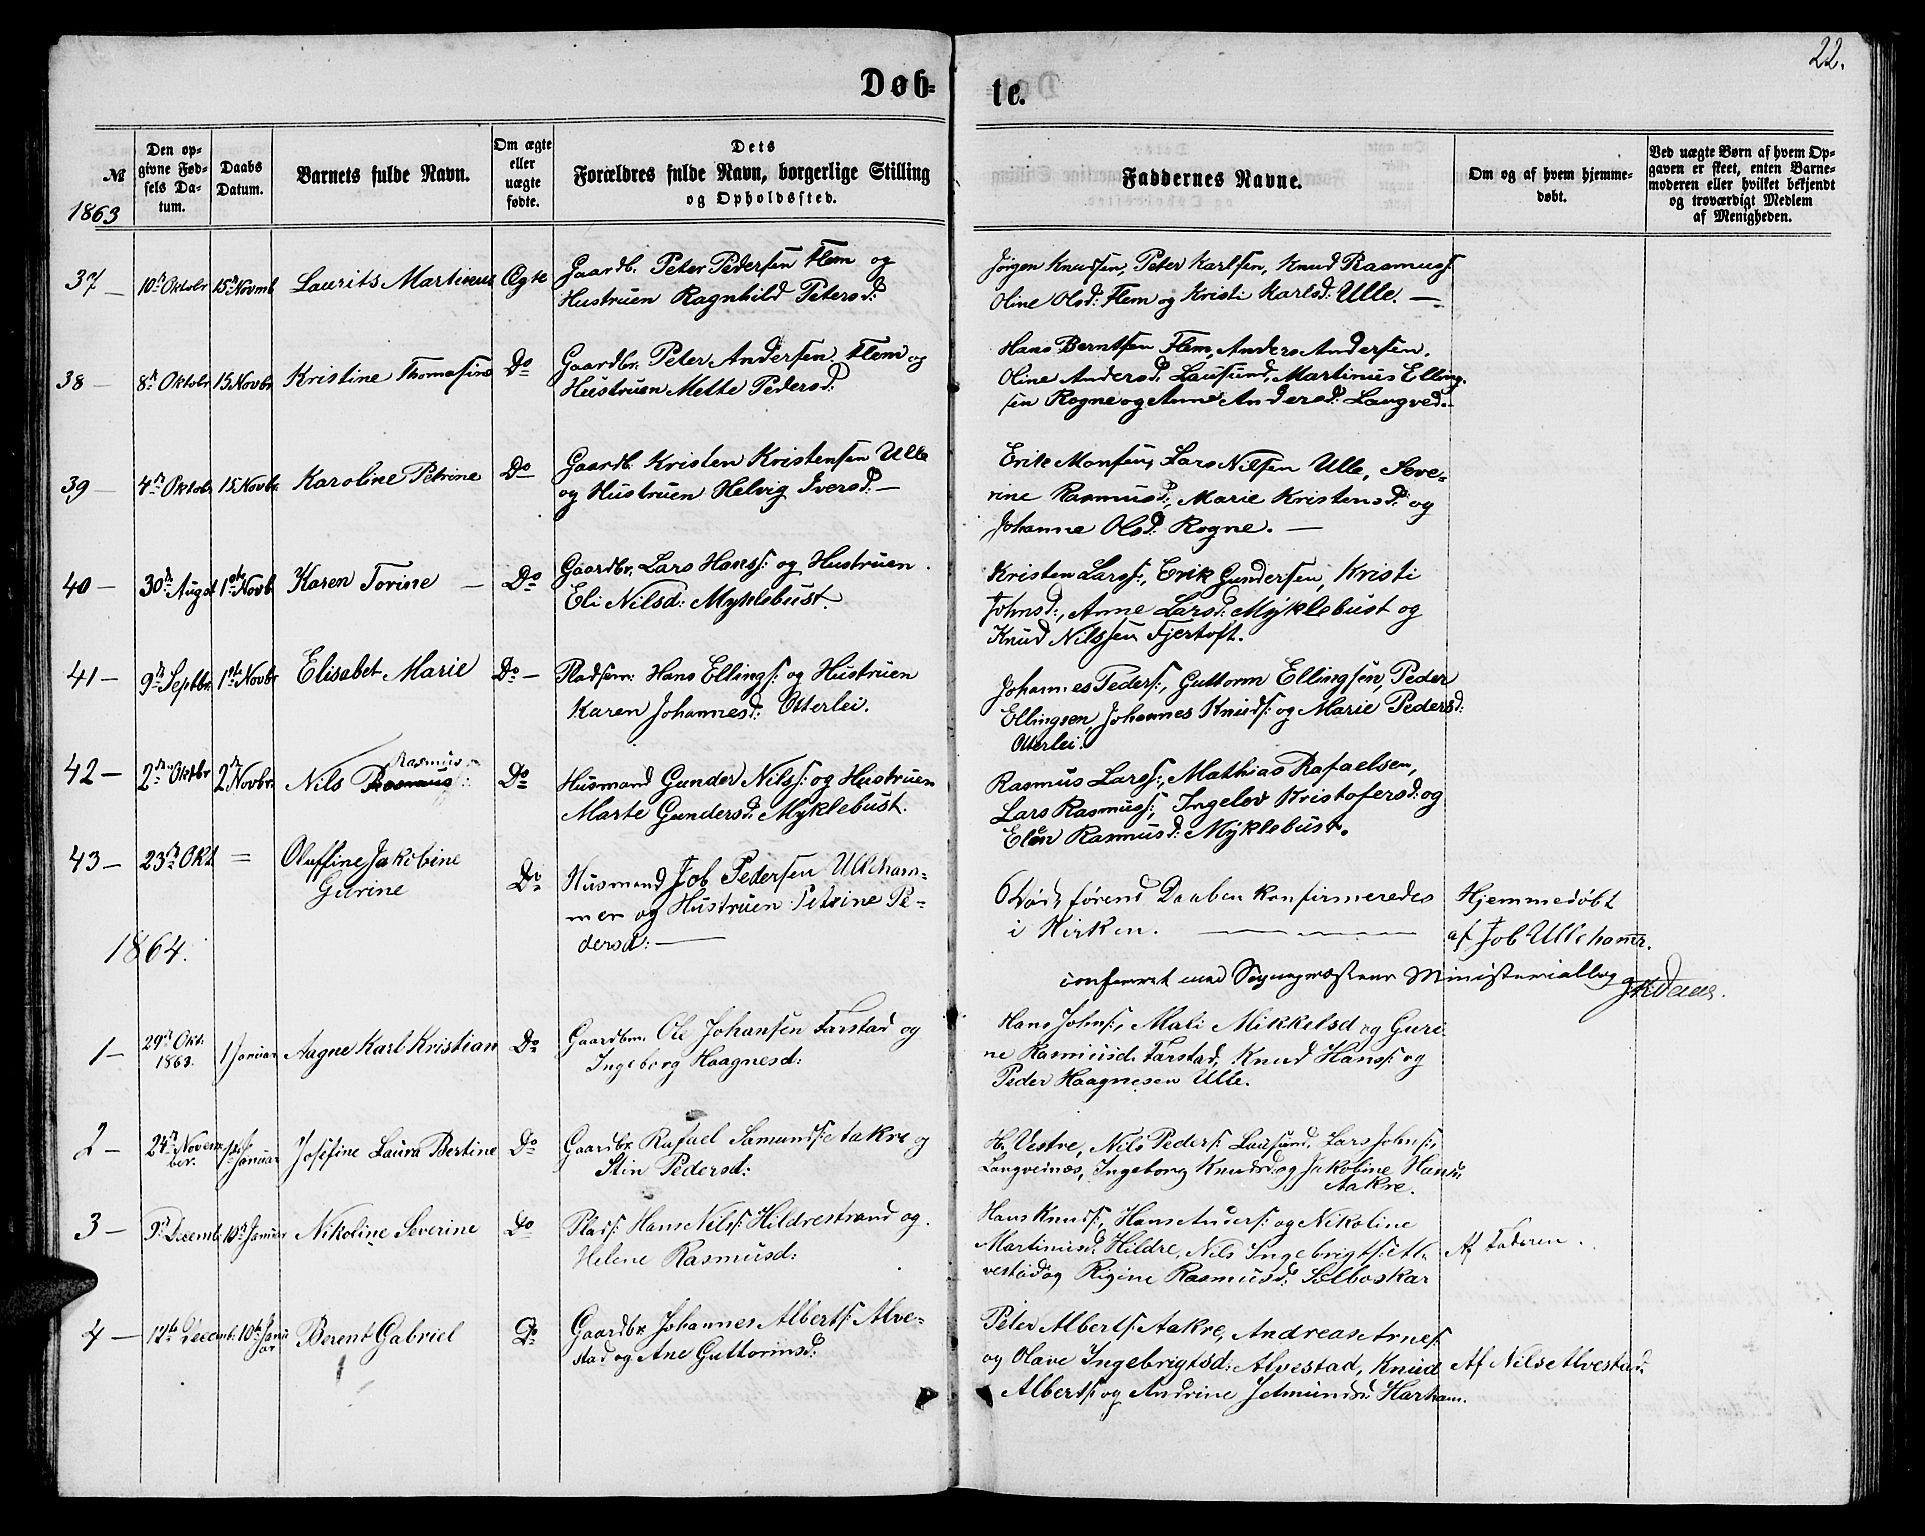 22.
Døb-
te.
№
Den op-
givne Fød-
sels Da-
tum.
Daabs
Datum.
Barnets fulde Navn.
Om ægte
eller
uægte
fødte.
Dets
Forældres fulde Navn, borgerlige Stilling
og Opholdssted.
Faddernes Navne.
Om og af hvem hjemme-
døbt.
Ved uægte Børn af hvem Op-
gaven er skeet, enten Barne-
moderen eller hvilket bekjendt
og troværdigt Medlem
af Menigheden.
1863
37 — 10de Oktobr 15de Novmb Laurits Martinus Ægte
Gaardb. Peter Pedersen Flem og
Hustruen Ragnhild Petersd:
Jörgen Knudsen, Peter Karlsen, Knud Rasmuss:
Oline Olsd: Flem og Kristi Karlsd: Ulle. —
38 — 8de Oktobr 15 Novbr Kristine Thomasine Do
Gaardbr. Peter Andersen Flem og
Hustruen Mette Pedersd:
Hans Berntsen Flem, Anders Andersen.
Oline Andersd. Lausund, Martinus Elling-
sen Rogne og Anne Andersd: Langved.
39 — 4de Oktobr 15 Novbr. Karoline Petrine Do
Gaardb. Kristen Kristensen Ulle
og Hustruen Helvig Iversd. —
Erik Monsen, Lars Nilsen Ulle, Seve-
rine Rasmusd:, Marie Kristensd: og
Johanne Olsd: Rogne. —
40 — 30de Augst 1ste Novb. Karen Torine — Do
Gaardbr. Lars Hans: og Hustruen
Eli Nilsd: Myklebust.
Kristen Larss:, Erik Gundersen, Kristi
Johnsd:, Anne Larsd: Myklebust og
Knud Nilssen Fjertoft.
41 — 9de Septbr. 1ste Novbr Elisabet Marie Do —
Pladsem: Hans Ellings: og Hustruen
Karen Johannesd: Otterlei.
Johannes Peders:, Guttorm Ellingsen, Peder
Ellingsen, Johannes Knuds: og Marie Pedersd:
Otterlei.
42 — 2den Oktbr 2 Novbr. Nils Rasmus Do
Rasmus
Husmand Gunder Nilss: og Hustruen
Marte Gundersd: Myklebust.
Rasmus Larss:, Mathias Rafaelsen,
Lars Rasmuss:, Ingelev Kristofersd: og
Elen Rasmusd: Myklebust.
43 — 23de Okt = Oluffine Jakobine
Gurine Do
Husmand Job Pedersen Ulleham-
mer og Hustruen Petrine Pe-
dersd: —
Död förend Daaben konfirmeredes
i Kirken.
Hjemmedöbt
af Job Ullehamr.
conferert med Sognepræstens Ministerialbog
1864.
1 — 29de Okt.
1863. 1 Januar Aagne Karl Kristian Do
Gaardbm. Ole Johansen Farstad og
Ingeborg Haagnesd:
Hans Johns:, Mali Mikkelsd og Guri-
ne Rasmusd. Farstad, Knud Hanss: og
Peder Haagnesen Ulle.
2 — 24de Novem-
ber. 1ste Januar Josefine Laura Bertine Do
Gaardbr. Rafael Samunds: Aakre og
Stin Pedersd:
H. Vestre, Nils Peders: Lausund. Lars Johns:,
Langveinæs, Ingeborg Knudsd: og Jakobine Hansd:
Aakre.
3 — 9de Decemb. 10de Januar Nikoline Severine Do
Plads: Hans Nilss: Hildrestrand og
Helene Rasmusd:
Hans Knuds:, Hans Anders: og Nikoline
Martinusd: Hildre, Nils Ingebrigts: Al-
vestad og Rigine Rasmusd: Solboskar
Af Faderen.
4 — 17de Decemb. 10de Janu-
ar Berent Gabriel Do
Gaardbr. Johannes Alberts: Alve-
stad og Ane Guttormsd:
Peter Alberts: Aakre, Andreas Arnes:
og Olave Ingebrigtsd: Alvestad, Knud
Alberts: og Andrine Jetmundsd: Harham.
Af Nils Alvestad.